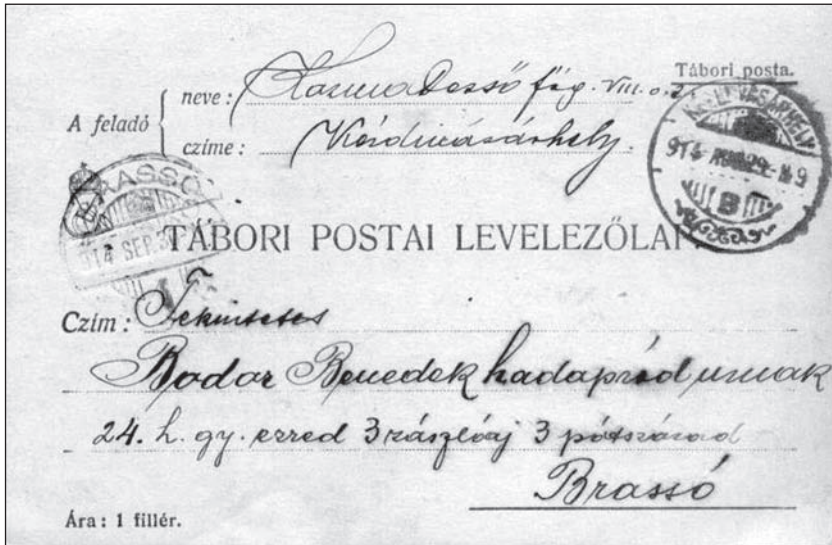 Tábori posta.
A feladó
neve: Dezső főg. VIII. o. t.
czíme: Kézdivásárhely.
KÉZDIVÁSÁRHELY
914 AUG 29
B
BRASSÓ
914 SEP 3
TÁBORI POSTAI LEVELEZŐLAP
Czím: Tekintetes
Bodor Benedek hadapród urnak
24. h. gy. ezred 3 zászlóaj 3 pótszázad
Brassó
Ára: 1 fillér.